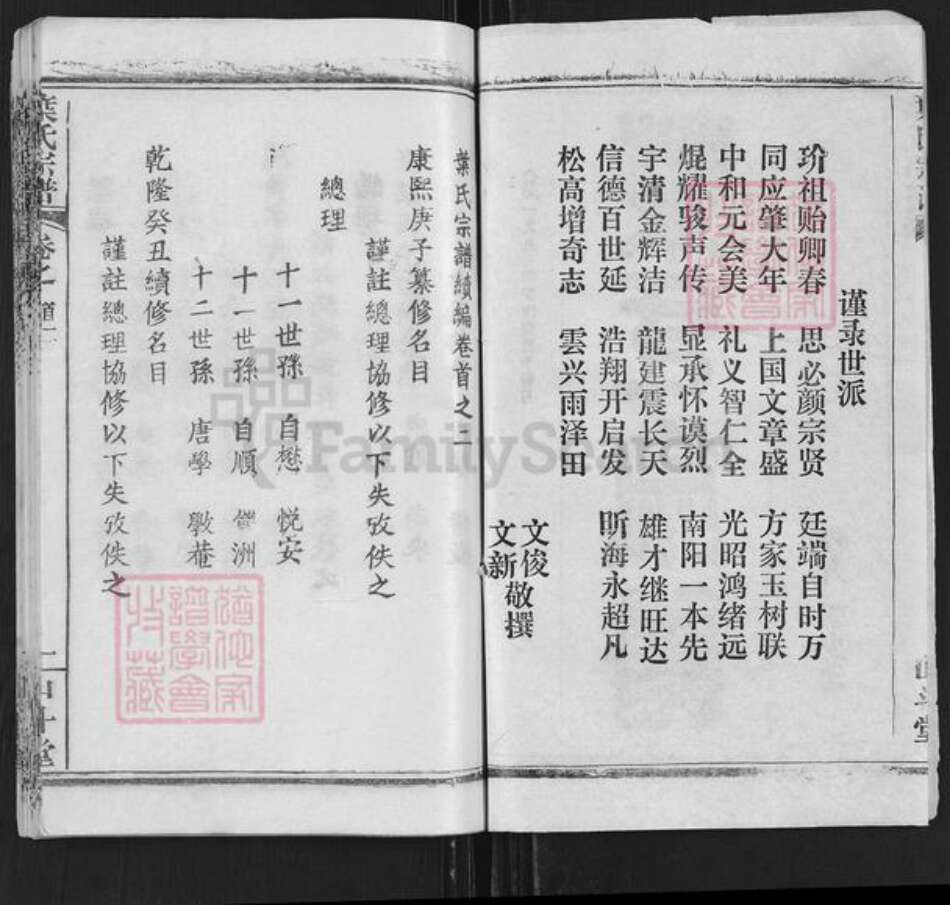 谨录世派
玠祖贻卿春 思必颜宗贤 廷端自时万
同应肇大年 上国文章盛 方家玉树联
中和元会美 礼义智仁全 光昭鸿绪远
焜耀骏声传 显承怀谟烈 南阳一本先
宇清金辉洁 龍建震长天 雄才继旺达
信德百世延 浩翔开启发 昕海永超凡
松高增奇志 雲兴雨泽田
文俊
文新 敬撰
葉氏宗譜續編卷首之二
康熙庚子纂修名目
謹註總理協修以下失攷佚之
總理
十一世孫 自懋 悦安
十一世孫 自順 洲
十二世孫 唐學 斆菴
乾隆癸丑續修名目
謹註總理協修以下失攷佚之
葉氏宗譜
卷之首二
二
山斗堂
山斗堂
FamilySearch
譜學會
收藏